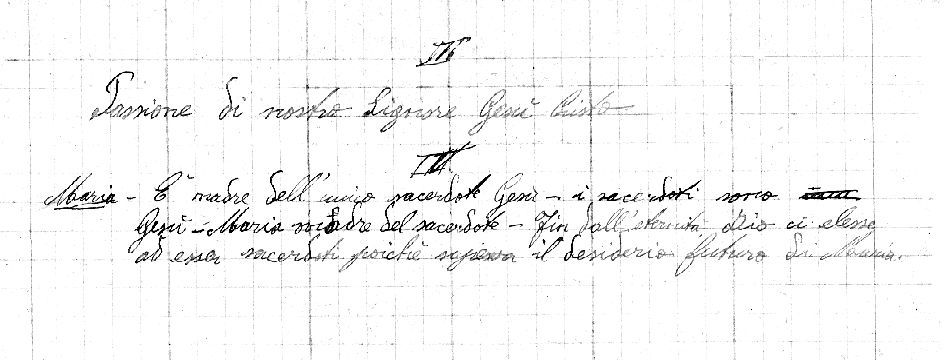 III
Passione di nostro Signore Gesù Cristo
IV
Maria - E' madre dell'unico sacerdote Gesù - i sacerdoti sono
Gesù - Maria madre del sacerdote - Fin dall'eternità Dio ci elesse
ad esser sacerdoti poichè sapeva il desiderio futuro di Maria.